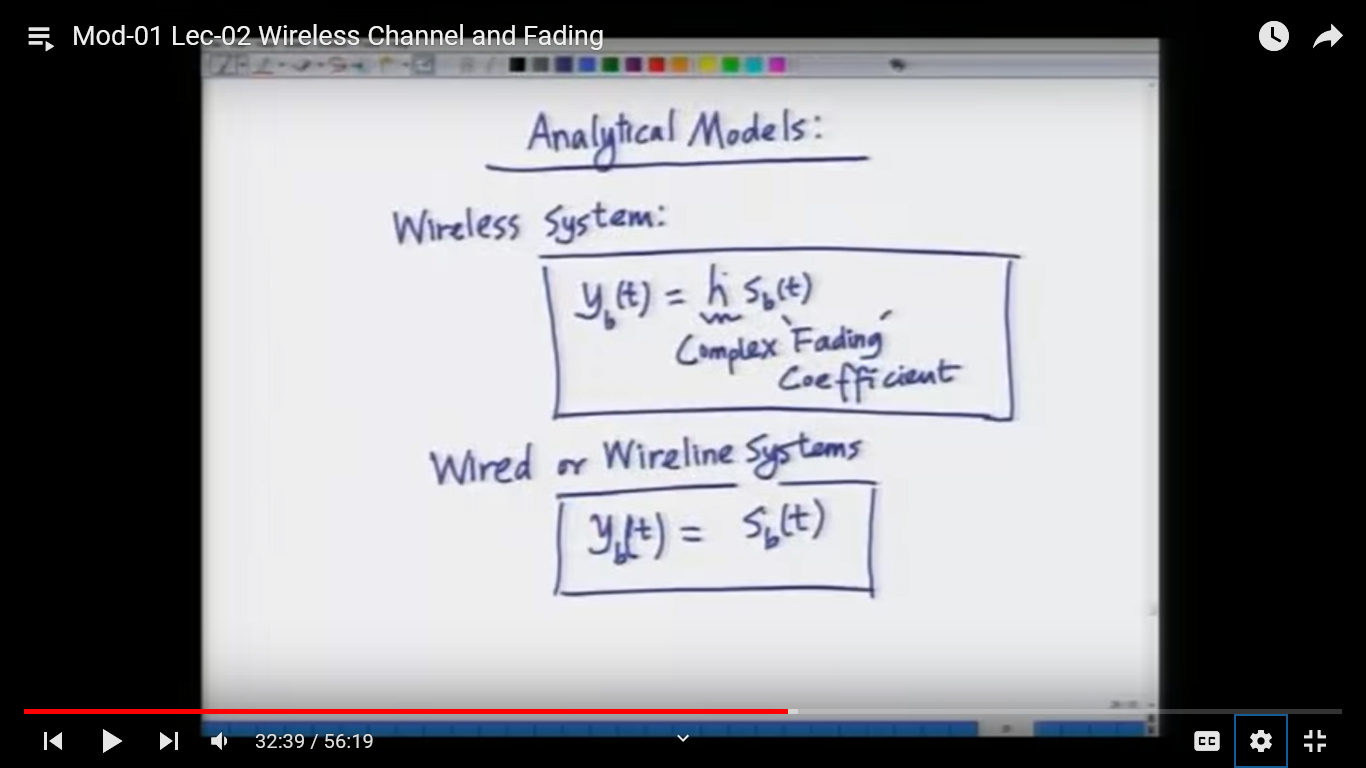 Mod-01 Lec-02 Wireless Channel and Fading
Analytical Models:
Wireless System:
y_b(t) = h s_b(t)
Complex "Fading"
Coefficient
Wired or Wireline Systems
y_b(t) = s_b(t)
32:39 / 56:19
CC